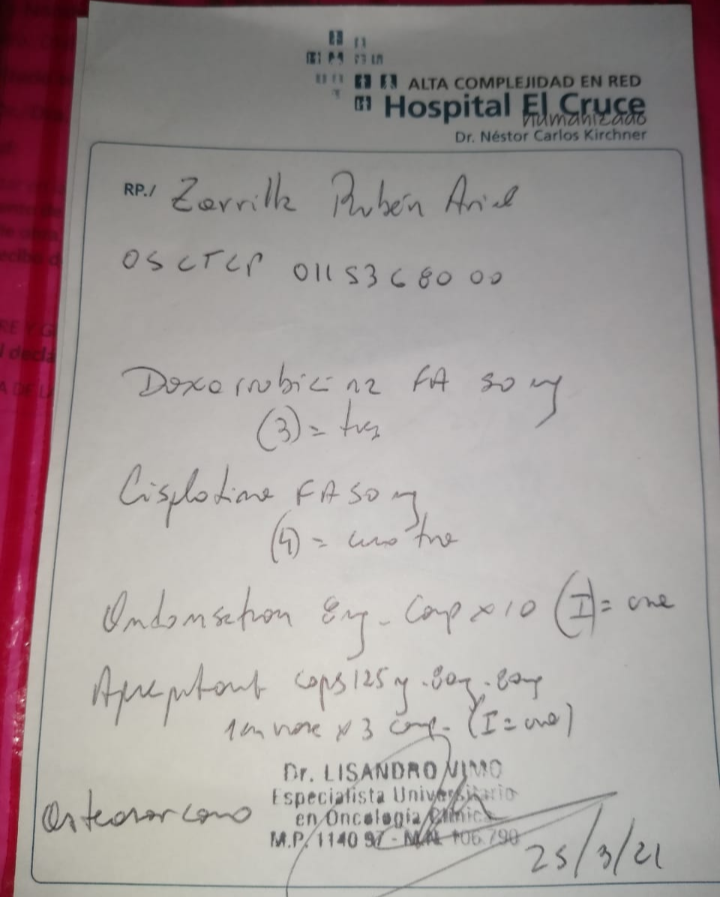 ALTA COMPLEJIDAD EN RED
Hospital El Cruce
humanizado
Dr. Néstor Carlos Kirchner
RP./ Zorrilla Rubén Ariel
OSCTCP 01153680 00
Doxorrubicina FA 50 mg
(3) = tres
Cisplatino FA 50 mg
(4) = cuatro
Ondansetron 8mg - Comp x 10 (I) = uno
Aprepitant caps 125 mg - 80mg - 80mg
1 envase x 3 comp. (I = uno)
Dr. LISANDRO VIMO
Especialista Universitario
en Oncología Clínica
M.P. 1140 97 - M.N. 106.790
Osteosarcoma
25/3/21